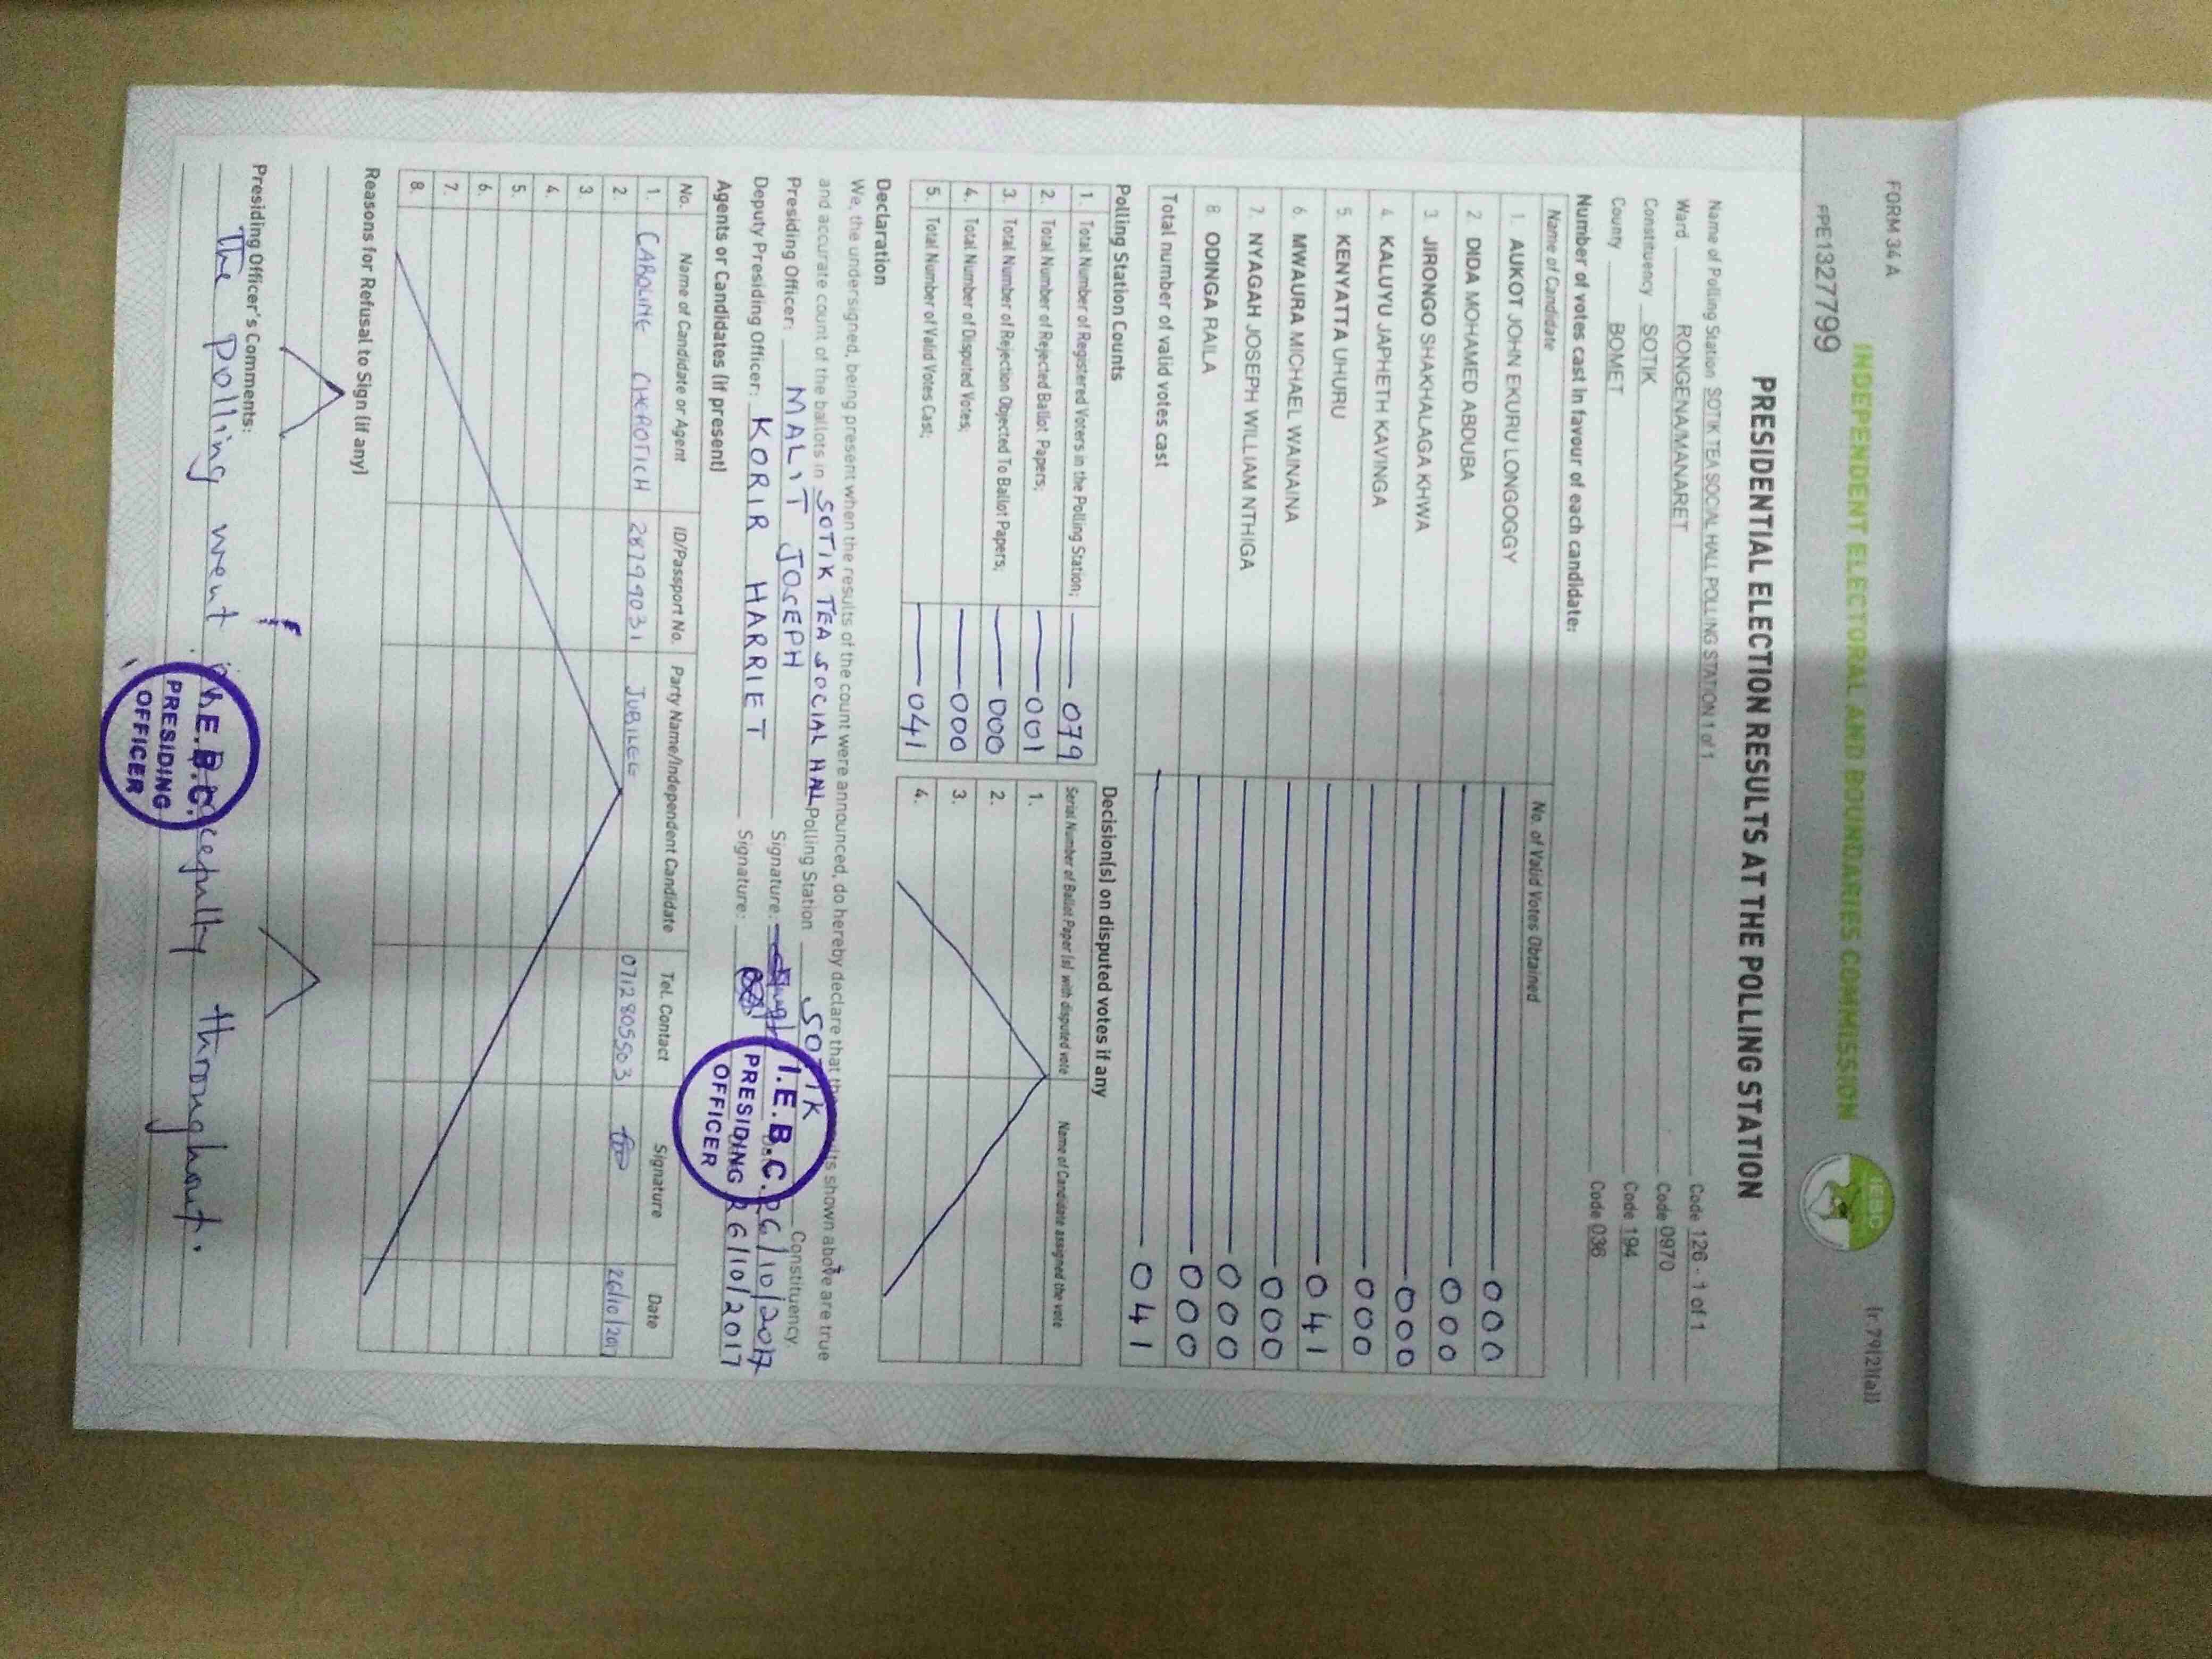 FORM 34 A
(r.79(2)(a))
PPE1327799
INDEPENDENT ELECTORAL AND BOUNDARIES COMMISSION
IEBC
PRESIDENTIAL ELECTION RESULTS AT THE POLLING STATION
Name of Polling Station SOTIK TEA SOCIAL HALL POLLING STATION 1 of 1 Code 126 - 1 of 1
Ward RONGENA/MANARET Code 0970
Constituency SOTIK Code 194
County BOMET Code 036
Number of votes cast in favour of each candidate:
Name of Candidate No. of Valid Votes Obtained
1. AUKOT JOHN EKURU LONGOGGY 000
2 DIDA MOHAMED ABDUBA 000
3 JIRONGO SHAKHALAGA KHWA 000
4 KALUYU JAPHETH KAVINGA 000
5. KENYATTA UHURU 041
6. MWAURA MICHAEL WAINAINA 000
7. NYAGAH JOSEPH WILLIAM NTHIGA 000
8 ODINGA RAILA 000
Total number of valid votes cast 041
Polling Station Counts
1. Total Number of Registered Voters in the Polling Station; 079
2. Total Number of Rejected Ballot Papers; 001
3. Total Number of Rejection Objected To Ballot Papers; 000
4. Total Number of Disputed Votes; 000
5. Total Number of Valid Votes Cast; 041
Decision(s) on disputed votes if any
Serial Number of Ballot Paper (s) with disputed vote Name of Candidate assigned the vote
1.
2.
3.
4.
Declaration
We, the undersigned, being present when the results of the count were announced, do hereby declare that the results shown above are true
and accurate count of the ballots in SOTIK TEA SOCIAL HALL Polling Station SOTIK Constituency.
Presiding Officer: MALIT JOSEPH Signature: 26/10/2017
Deputy Presiding Officer: KORIR HARRIET Signature: 26/10/2017
I.E.B.C.
PRESIDING
OFFICER
Agents or Candidates (if present)
No. Name of Candidate or Agent ID/Passport No. Party Name/Independent Candidate Tel. Contact Signature Date
1. CAROLINE CHEROTICH 28799031 JUBILEE 0712805503 26/10/2017
2.
3.
4.
5.
6.
7.
8.
Reasons for Refusal to Sign (if any)
Presiding Officer's Comments:
The polling went on peacefully throughout.
I.E.B.C.
PRESIDING
OFFICER